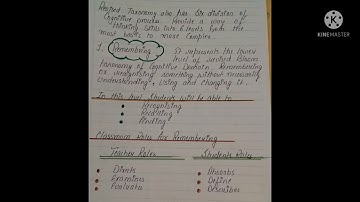 Taxonomy also has Six division of
Cognitive process. Provide a way of
thinking skills into 6 levels from the
most basic to more complex.
1. Remembering It represents the lowest
level of revised Blooms
Taxonomy of Cognitive Domain. Remembering
or recognizing something without necessarily
Understanding, Using and changing it.
In this level, Students will be able to
Recognising
Recalling
Finding
Classroom Roles for Remembering
Teacher Roles Students Roles
Directs Absorbs
Examines Define
Evaluate Describes
KINEMASTER